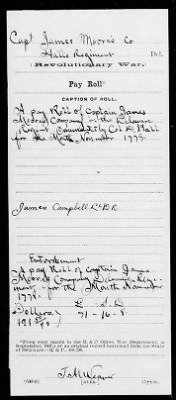 Capt James Moore's Co
Hall's Regiment Del.
Revolutionary War.
Pay Roll
CAPTION OF ROLL.
A pay Roll of Captain James
Moore's Company in the Delaware
Regiment Commanded by Col D. Hall
for the Month November 1778
James Campbell
Endorsement
A pay Roll of Captain James
Moore's Company Delaware Regi-
ment for the Month November
1778.
Dollars £ S D
71 - 16 - 8
*From copy made in the R. & P. Office, War Department, in